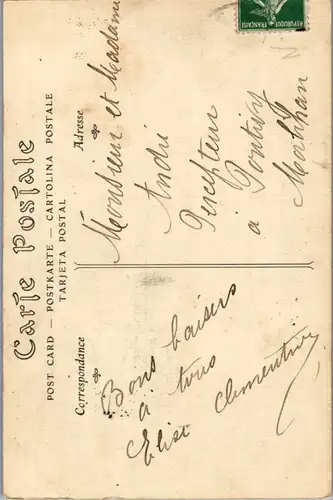 Carte Postale
POST CARD — POSTKARTE — CARTOLINA POSTALE
TARJETA POSTAL
Correspondance
Adresse
Bons baisers
à tous
Elise Clementine
Monsieur et Madame
André
Percepteur
a Pontivy
Morbihan
REPUBLIQUE FRANÇAISE